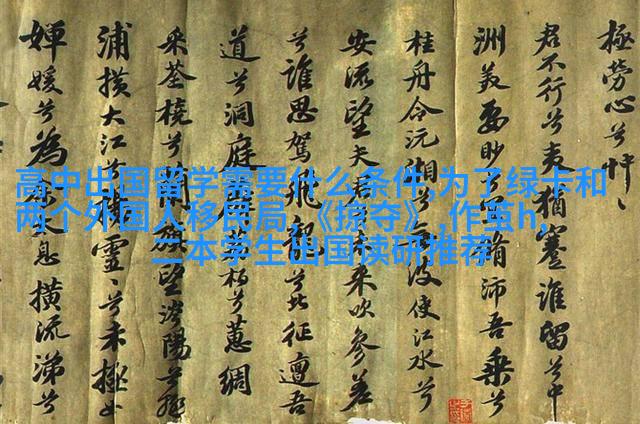 高中出国留学需要什么条件,为了绿卡和
两个外国人移民局,《掠夺》,作茧h,
二本学生出国读研推荐
極勞心兮
君不行兮夷猶蹇誰留兮中
洲美要眇兮脩沛吾乗兮
桂舟令沅湘兮波使江水兮
安流望夫君来吹參差
兮誰思駕飛龍兮北征邅吾
道兮洞庭兮蕙綢
采荃橈兮蘭旌望涔陽兮極
浦横大江兮靈兮未極女
嬋媛兮為息横流涕兮